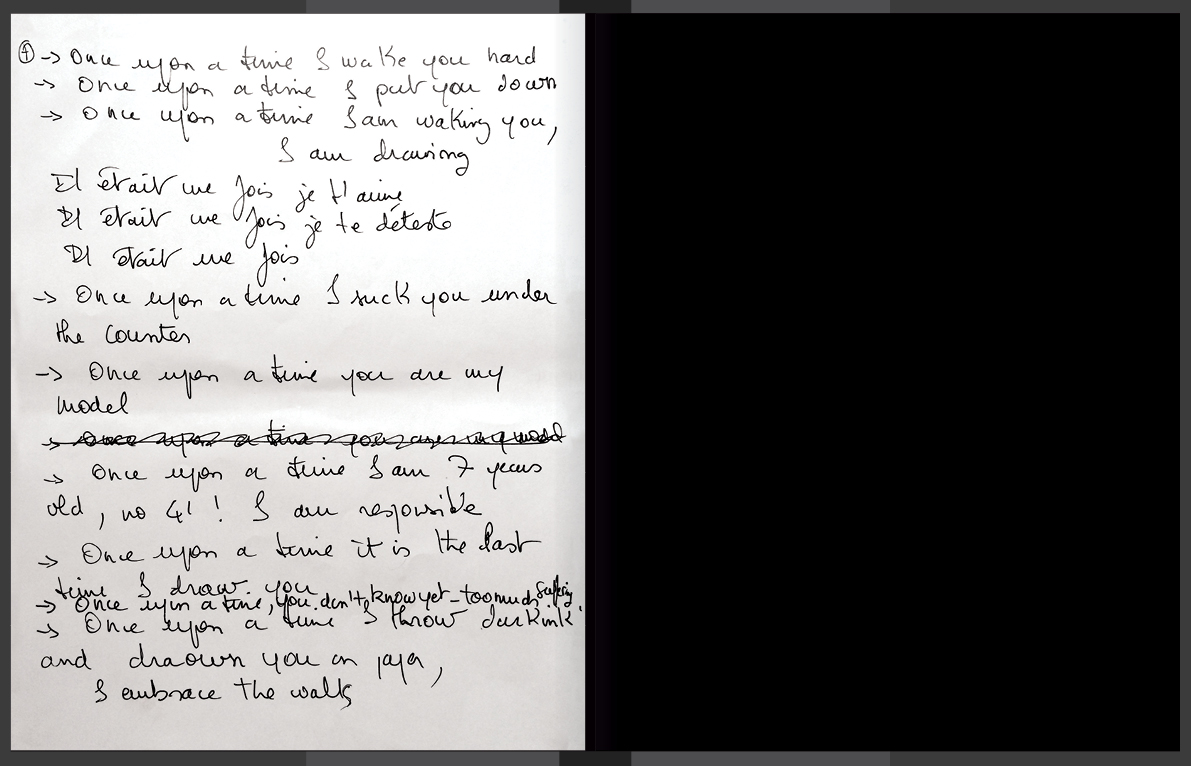 ① → Once upon a time I wake you hard
→ Once upon a time I put you down
→ Once upon a time I am waking you,
I am drawing
Il était une fois je t'aime
Il était une fois je te déteste
Il était une fois
→ Once upon a time I suck you under
the counter
→ Once upon a time you are my
model
→ Once upon a time you are my model
→ Once upon a time I am 7 years
old, no 41! I am responsible
→ Once upon a time it is the last
time I draw you
→ Once upon a time, you don't know yet - too much
→ Once upon a time I throw dark ink
and draown you on paper,
I embrace the walls